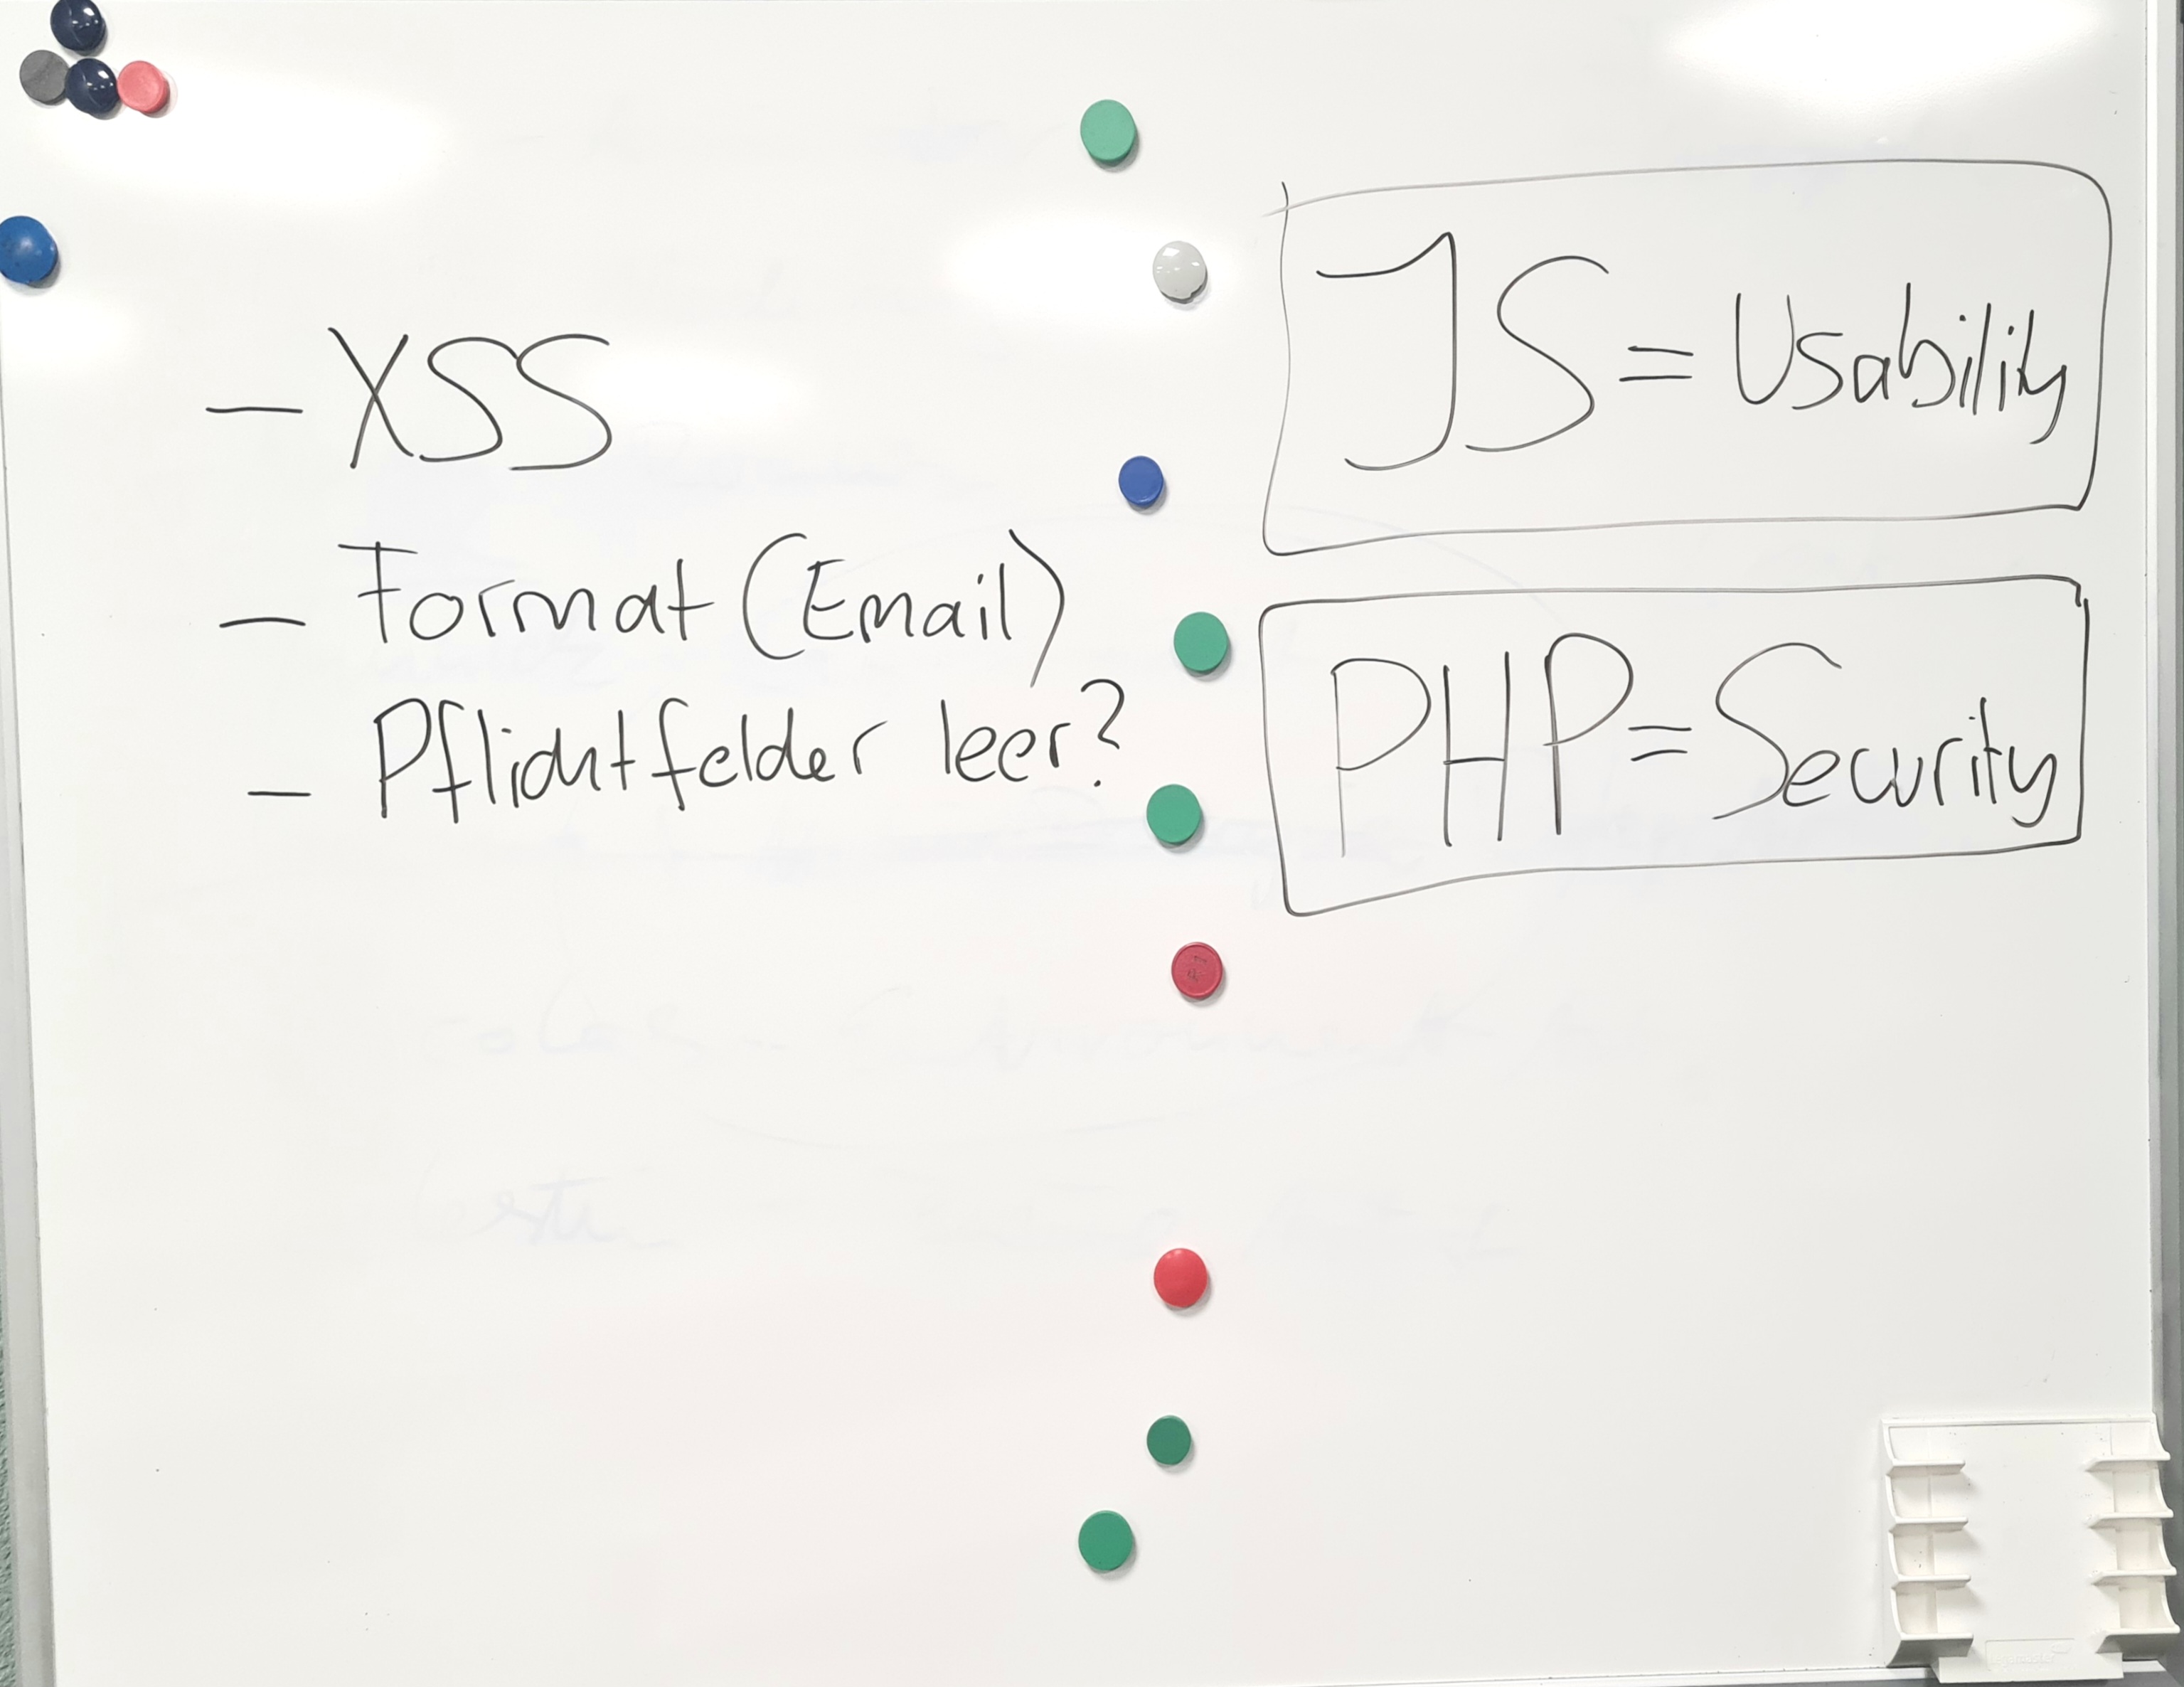 - XSS
- Format (Email)
- Pflichtfelder leer?
JS = Usability
PHP = Security